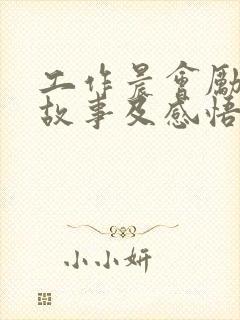 工作晨會勵
故事及感悟
小小妍